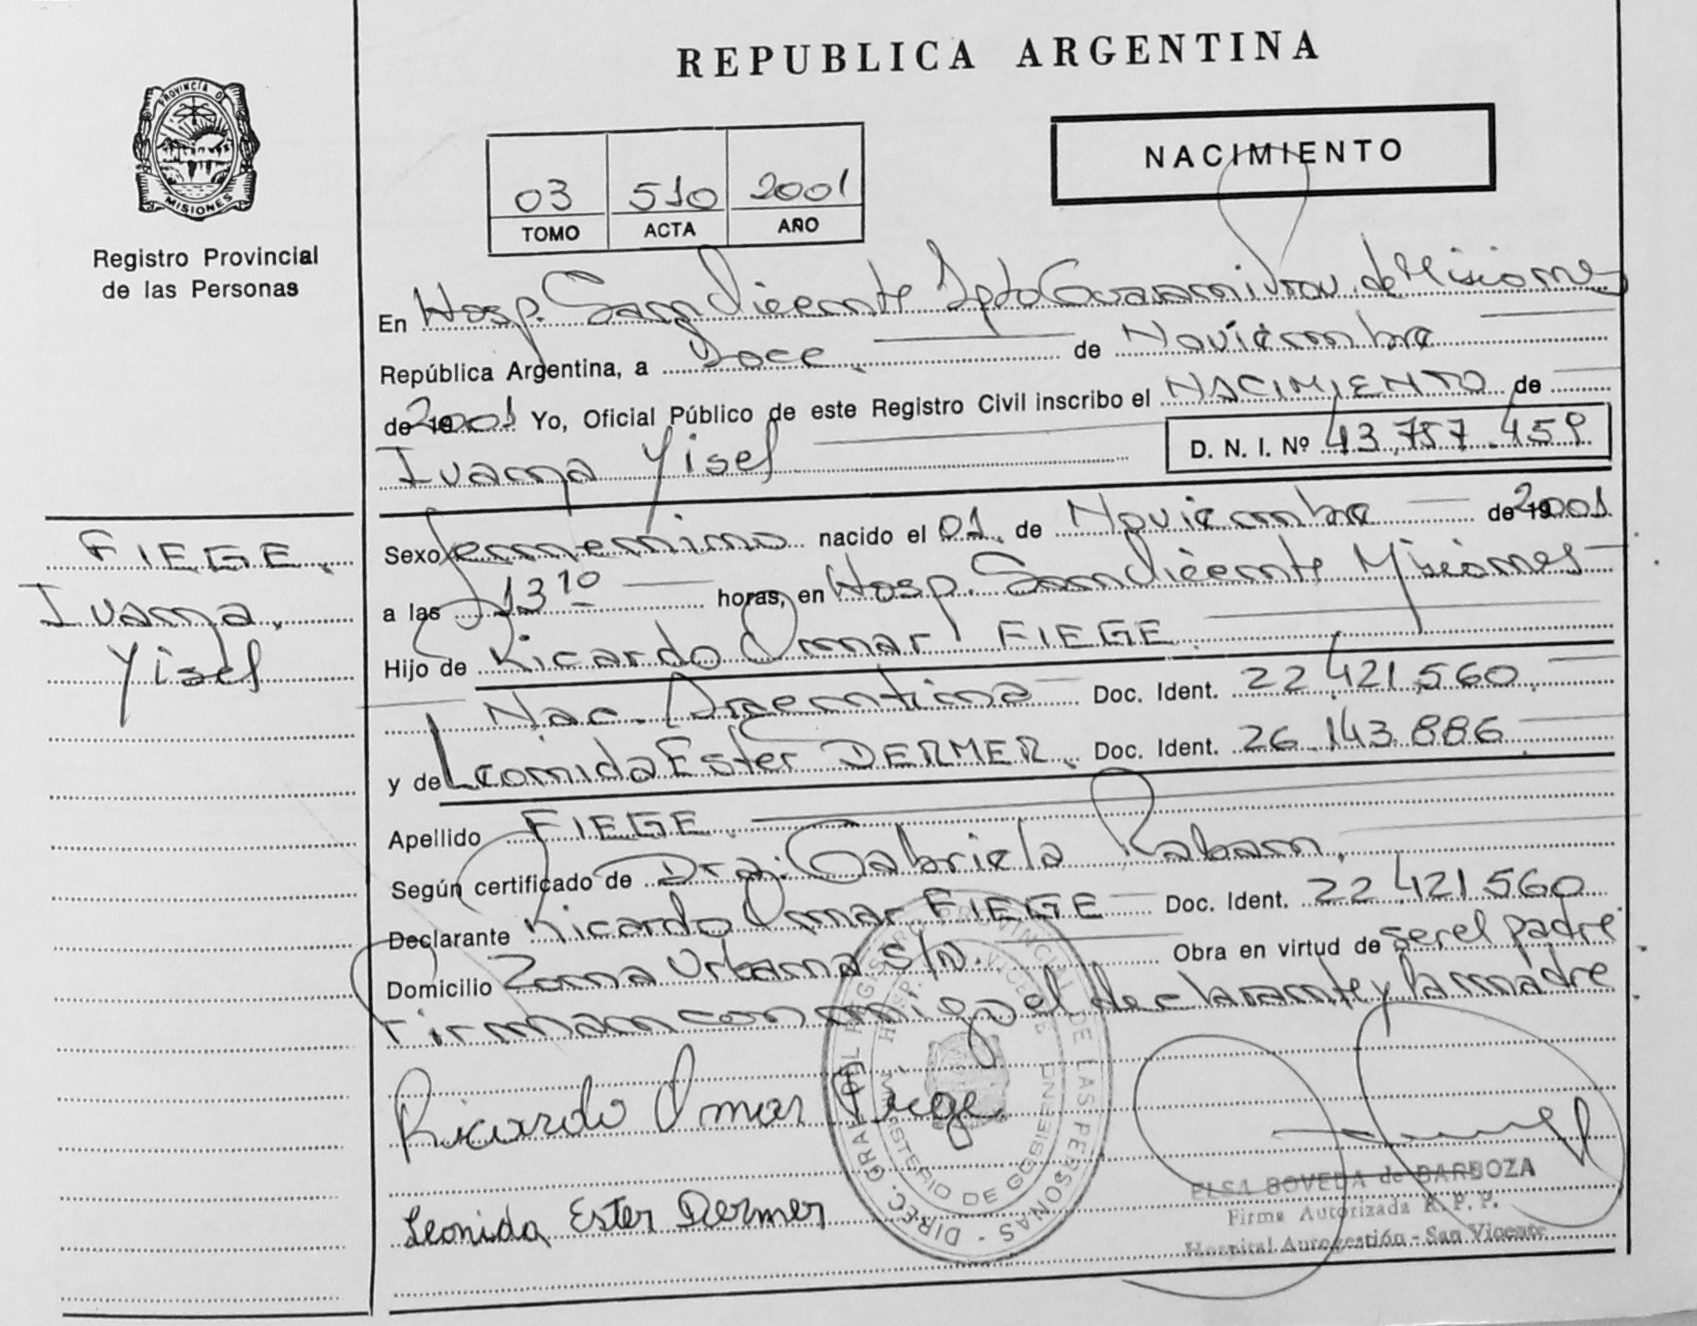 REPUBLICA ARGENTINA
PROVINCIA D
MISIONES
Registro Provincial
de las Personas
NACIMIENTO
03 510 2001
TOMO ACTA AÑO
En Hosp. San Vicente Dpto Guarani Prov. de Misiones
República Argentina, a Doce de Noviembre
de 2001 Yo, Oficial Público de este Registro Civil inscribo el NACIMIENTO de
Ivana Yisel D. N. I. Nº 43.757.459
FIEGE
Ivana
Yisel
Sexo femenino nacido el 01 de Noviembre de 2001
a las 13 10 horas, en Hosp. San Vicente Misiones
Hijo de Ricardo Omar FIEGE
Nac. Argentina Doc. Ident. 22.421.560
y de Leonida Ester DERMER Doc. Ident. 26.143.886
Apellido FIEGE
Según certificado de Dra. Gabriela Raban
Declarante Ricardo Omar FIEGE Doc. Ident. 22.421.560
Domicilio Zona Urbana S/N. Obra en virtud de ser el padre
Firman conmigo el declarante y la madre
Ricardo Omar Fiege
Leonida Ester Dermer
DIREC. GRAL DEL REGISTRO PROVINCIAL DE LAS PERSONAS
HOSP. VICENTE
MINISTERIO DE GOBIERNO
ELSA BOVEDA de BARBOZA
Firma Autorizada R. P. P.
Hospital Autogestión - San Vicente